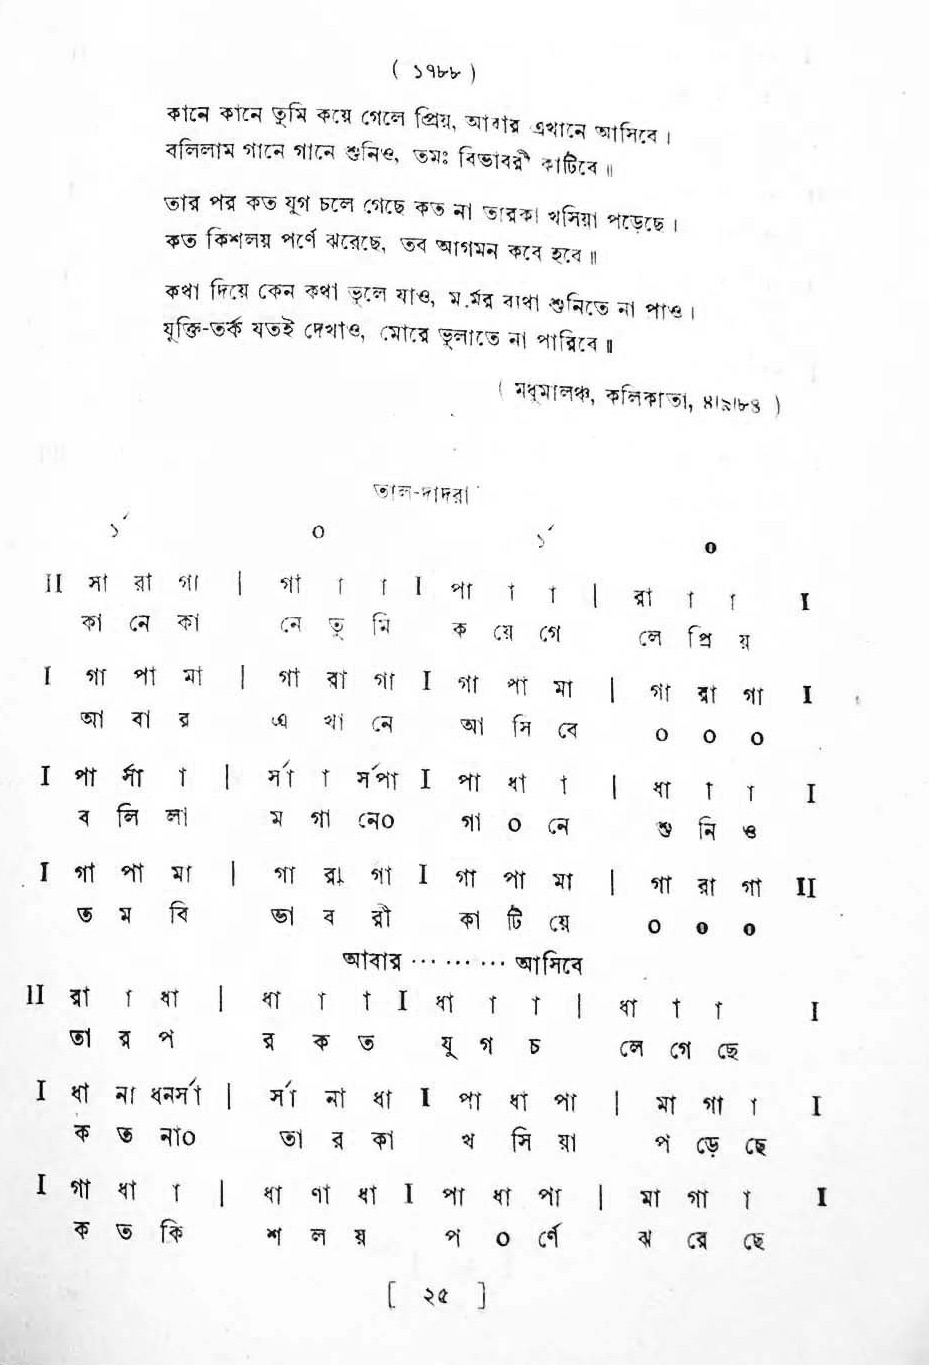 ( ১৭৮৮ )
কানে কানে তুমি কয়ে গেলে প্রিয়, আবার এখানে আসিবে ।
বলিলাম গানে গানে শুনিও, তমঃ বিভাবরী কাটিবে ॥
তার পর কত যুগ চলে গেছে কত না তারকা খসিয়া পড়েছে ।
কত কিশলয় পর্ণে ঝরেছে, তব আগমন কবে হবে ॥
কথা দিয়ে কেন কথা ভুলে যাও, মর্মর ব্যথা শুনিতে না পাও ।
যুক্তি-তর্ক যতই দেখাও, মোরে ভুলাতে না পারিবে ॥
( মধুমালঞ্চ, কলিকাতা, ৪।৯।৮৪ )
তাল-দাদরা
১´ ০ ১´ ০
II সা রা গা | গা া া I পা া া | রা া া I
কা নে কা নে তু মি ক য়ে গে লে প্রি য়
I গা পা মা | গা রা গা I গা পা মা | গা রা গা I
আ বা র এ খা নে আ সি বে ০ ০ ০
I পা র্সা া | র্সা া র্সপা I পা ধা া | ধা া া I
ব লি লা ম গা নে০ গা ০ নে শু নি ও
I গা পা মা | গা রা গা I গা পা মা | গা রা গা II
ত ম বি ভা ব রী কা টি য়ে ০ ০ ০
আবার ... ... ... আসিবে
II রা া ধা | ধা া া I ধা া া | ধা া া I
তা র প র ক ত যু গ চ লে গে ছে
I ধা না ধনর্সা | র্সা না ধা I পা ধা পা | মা গা া I
ক ত না০ তা র কা খ সি য়া প ড়ে ছে
I গা ধা া | ধা ণা ধা I পা ধা পা | মা গা া I
ক ত কি শ ল য় প ০ র্ণে ঝ রে ছে
[ ২৫ ]